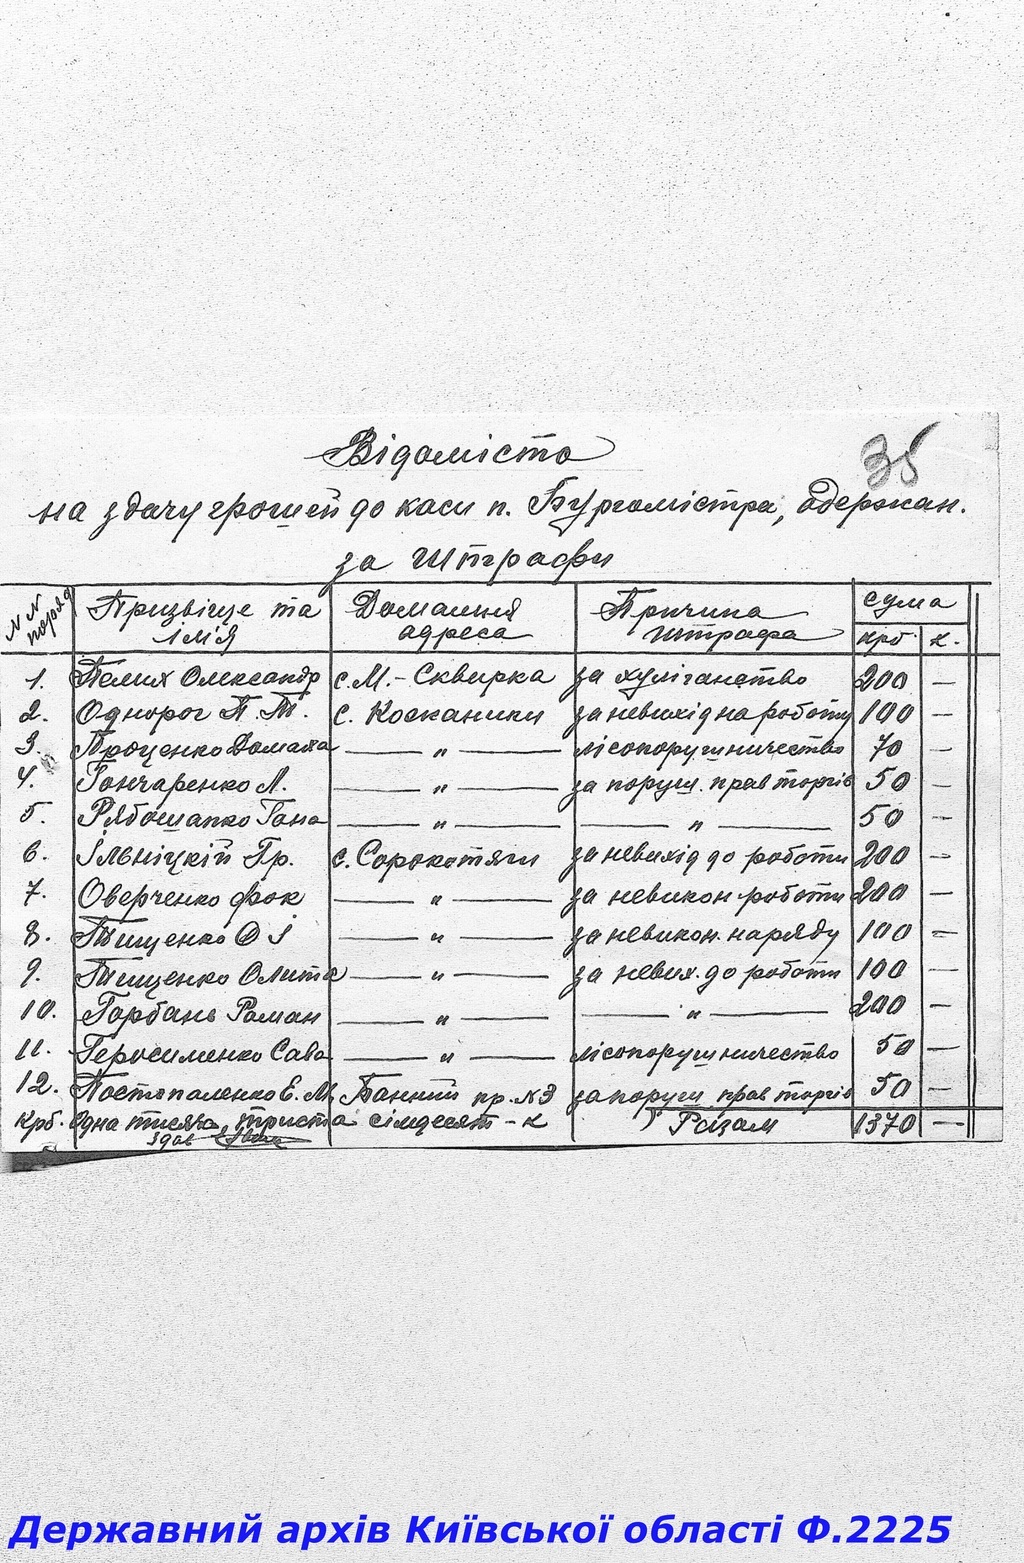 Відомість
35
на здачу грошей до каси п. Бургомістра, одержан.
за штрафи
№№ поряд | Призвіще та ім'я | Домашня адреса | Причина штрафа | сума крб. | к.
1. Пелих Олександр | с. М.-Сквирка | за хуліганство | 200 | —
2. Однорог П. Т. | с. Косменики | за невихід на роботу | 100 | —
3. Проценко Домаха | — " — | лісопорушничество | 70 | —
4. Гончаренко Л. | — " — | за поруш. прав торгів | 50 | —
5. Рябошапко Гана | — " — | — " — | 50 | —
6. Ільніцкій Гр. | с. Сорокотяги | за невихід до роботи | 200 | —
7. Оверченко Фок | — " — | за невикон роботи | 200 | —
8. Тищенко О І | — " — | за невикон. наряду | 100 | —
9. Тищенко | — " — | за невих. до роботи | 100 | —
10. Горбань Роман | — " — | — " — | 200 | —
11. Геросименко Сава | — " — | лісопорушничество | 50 | —
12. Постопаленко Е. М. | Банний пр. №3 | за поруш прав торгів | 50 | —
Крб. Одна тисяча триста сімдесят - к | Разам | 1370 | —
здав
Державний архів Київської області Ф.2225